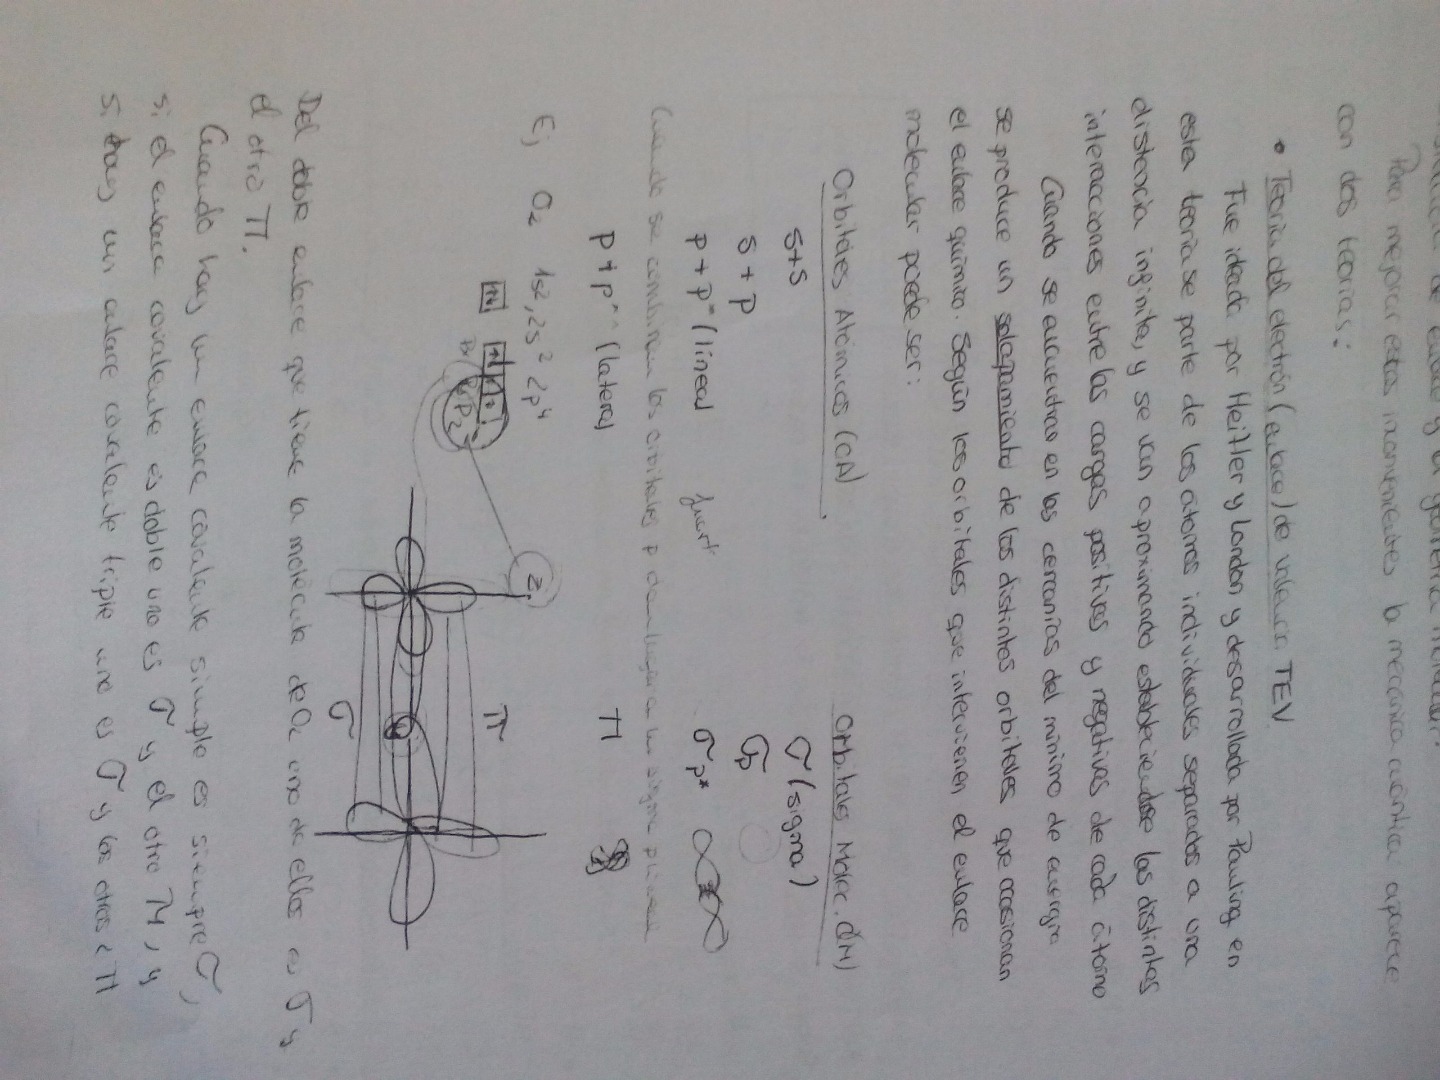 de enlace y la geometría molecular.
Para mejorar estos inconvenientes la mecánica cuántica aparece
con dos teorías:
• Teoría del electrón (enlace) de valencia TEV
Fue ideada por Heitler y London y desarrollada por Pauling en
esta teoría se parte de los átomos individuales separados a una
distancia infinita, y se van aproximando estableciendose las distintas
interacciones entre las cargas positivas y negativas de cada átomo
Cuando se encuentras en las cercanías del mínimo de energía
se produce un solapamiento de los distintos orbitales que ocasionan
el enlace químico. Según los orbitales que intervienen el enlace
molecular puede ser:
Orbitales Atómicos (OA) Orbitales Molec. (OM)
s+s σ (sigma)
s + p σp
p + p" (lineal σp*
p + p" (lateral π
Cuando se combinan los orbitales p
Ej O2 1s2, 2s2 2p4
2
π
σ
Del doble enlace que tiene la molécula de O2 uno de ellos es σ y
el otro π.
Cuando hay un enlace covalente simple es siempre σ,
si el enlace covalente es doble uno es σ y el otro π, y
si hay un enlace covalente triple uno es σ y los otros 2 π